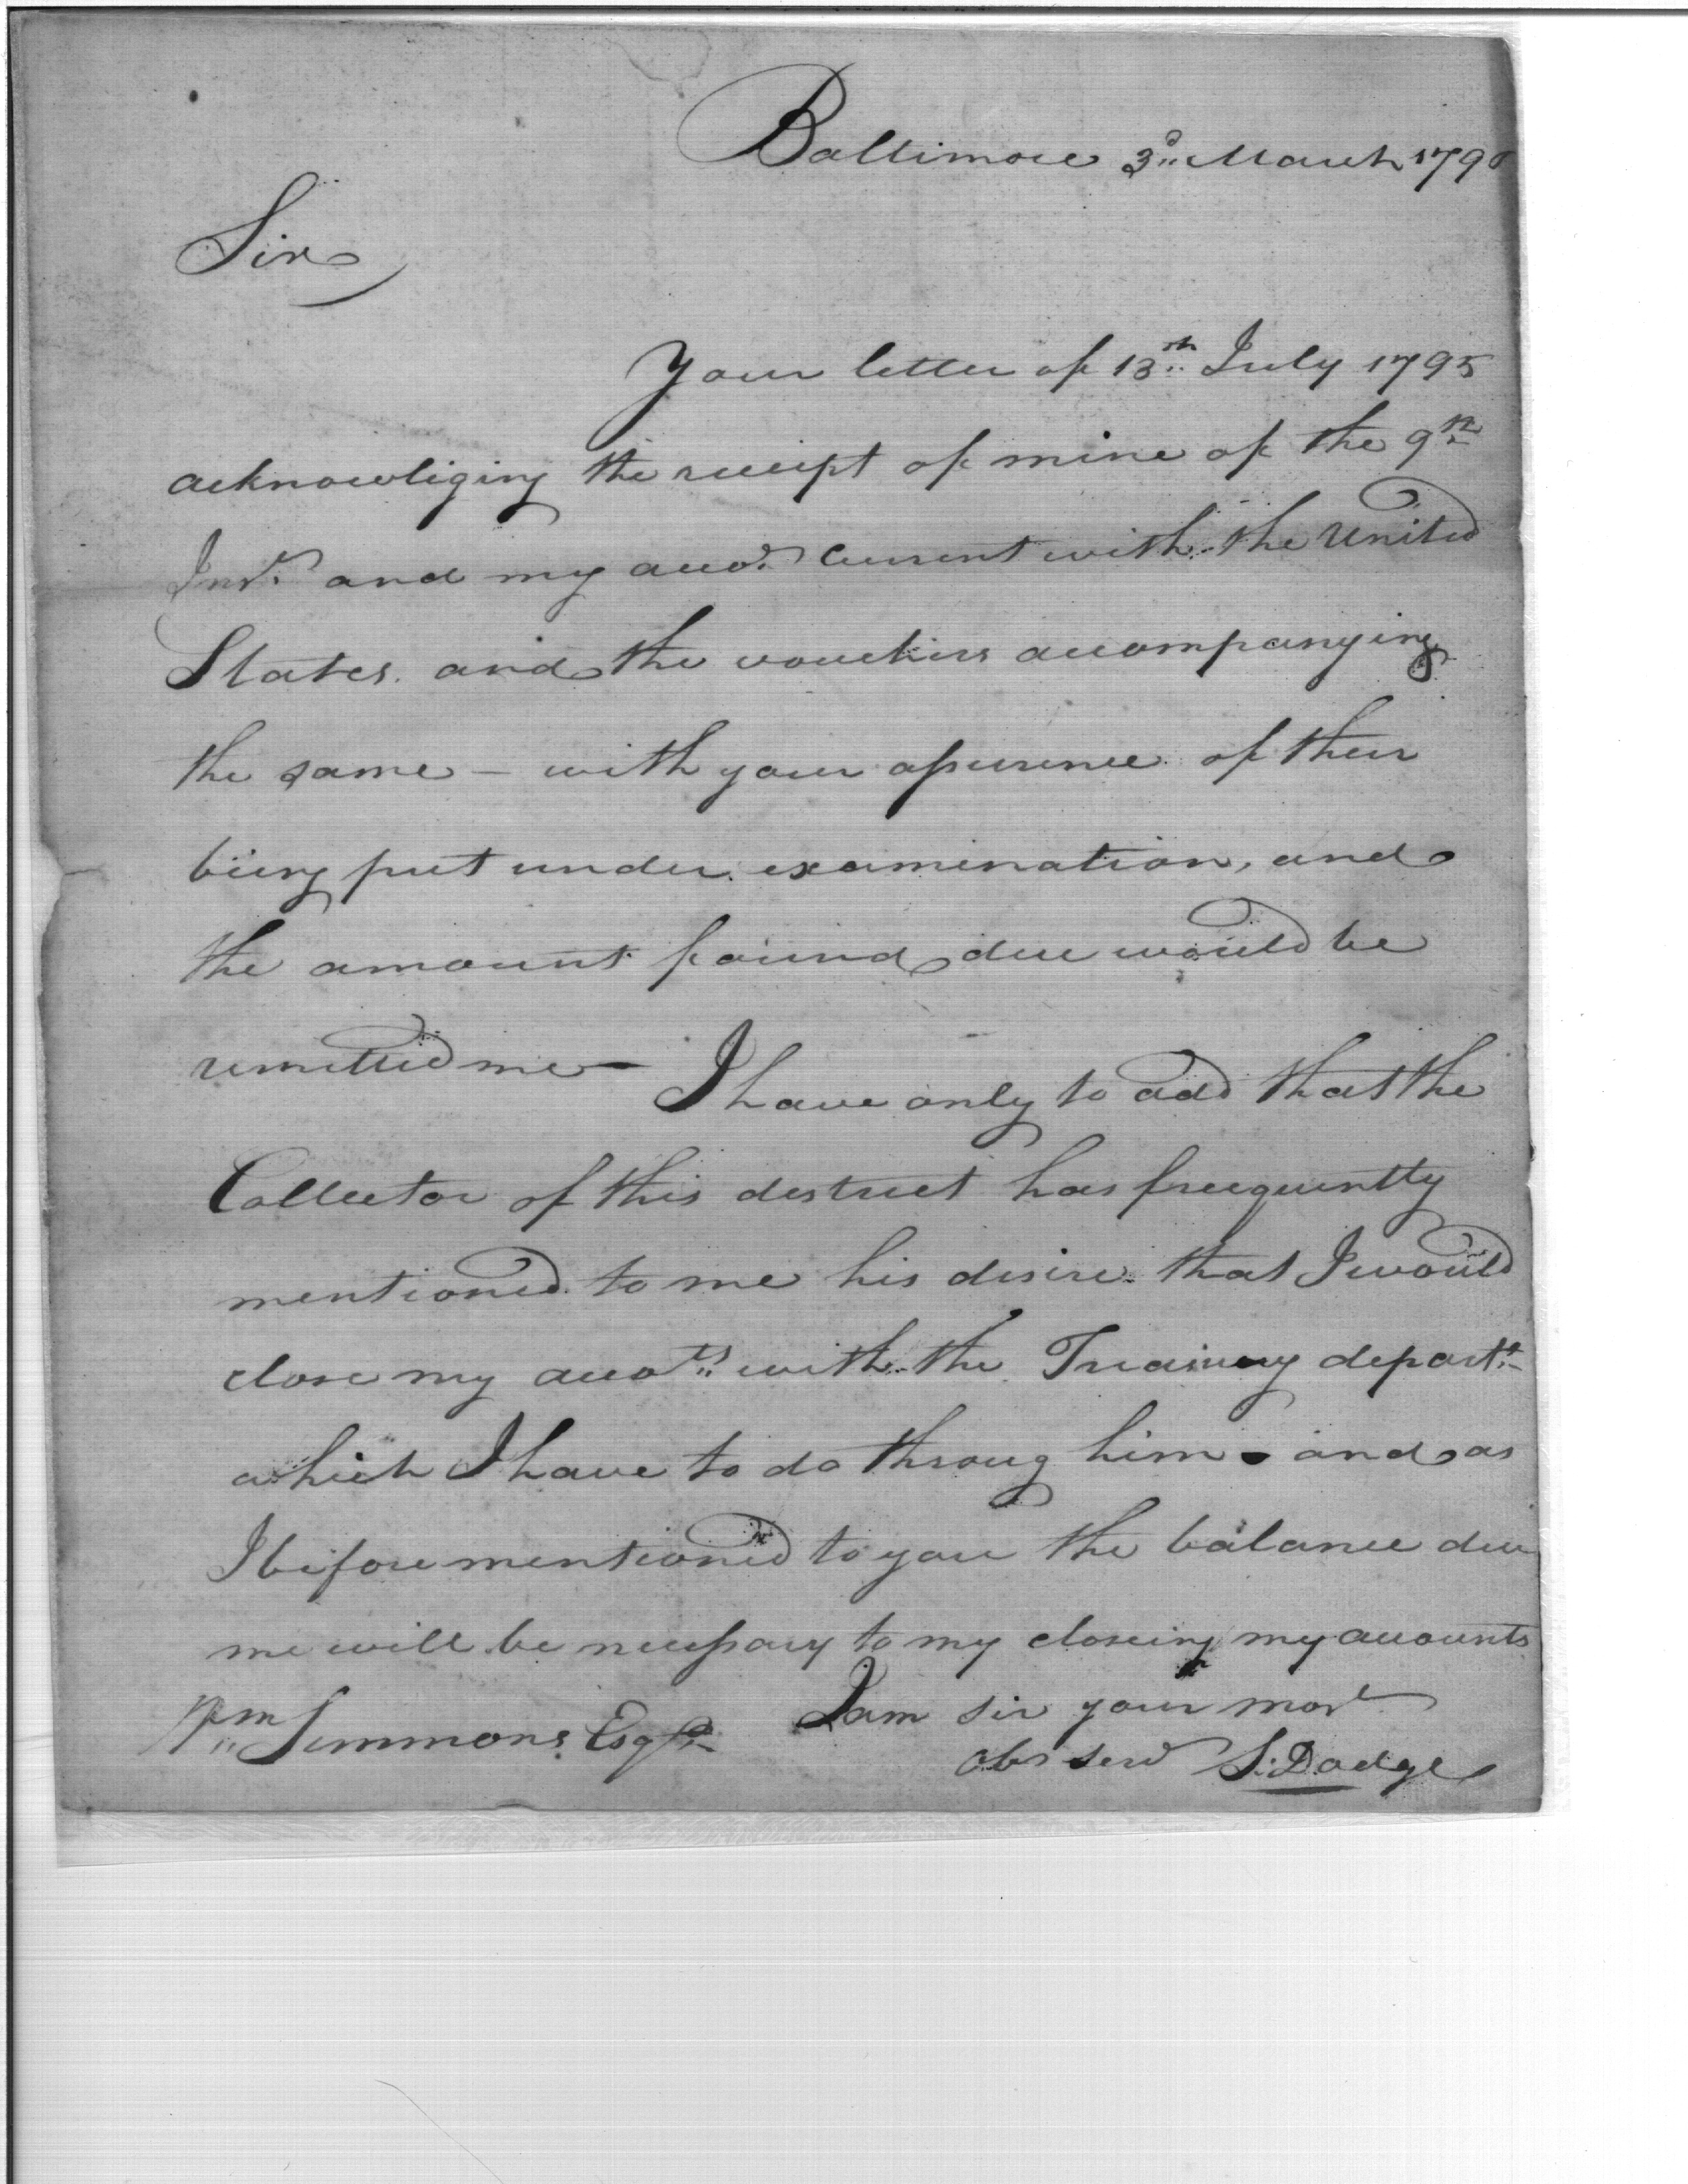 Baltimore 3d March 179
Sir
Your letter of 13th July 1795
acknowliging the receipt of mine of the 9th
Inst. and my acco. Current with the United
States. and the vouchers accompanying
the same - with your assurence of their
being put under examination, and
the amount found due would be
remitted me - I have only to add that the
Collector of this destrict has freequently
mentioned to me his desire that I would
close my accots with the Treasury departt.
which I have to do throug him - and as
I before mentioned to you the balance due
me will be necessary to my closeing my accounts
Wm Simmons Esqr. I am sir your most
obt serv S. Dodge